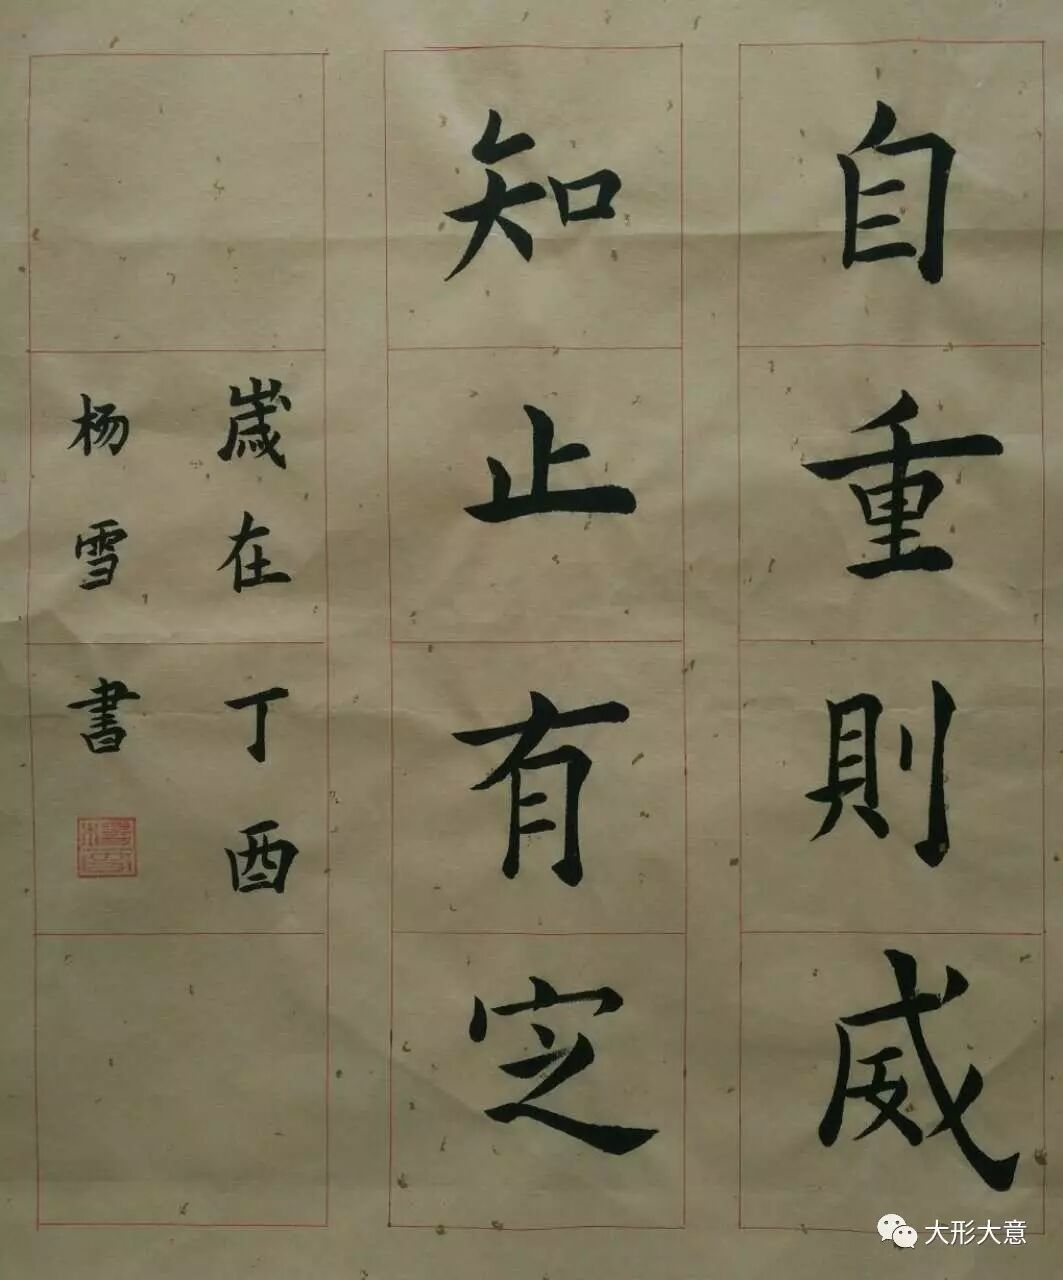 自重則威
知止有定
歲在丁酉
杨雪書
大形大意